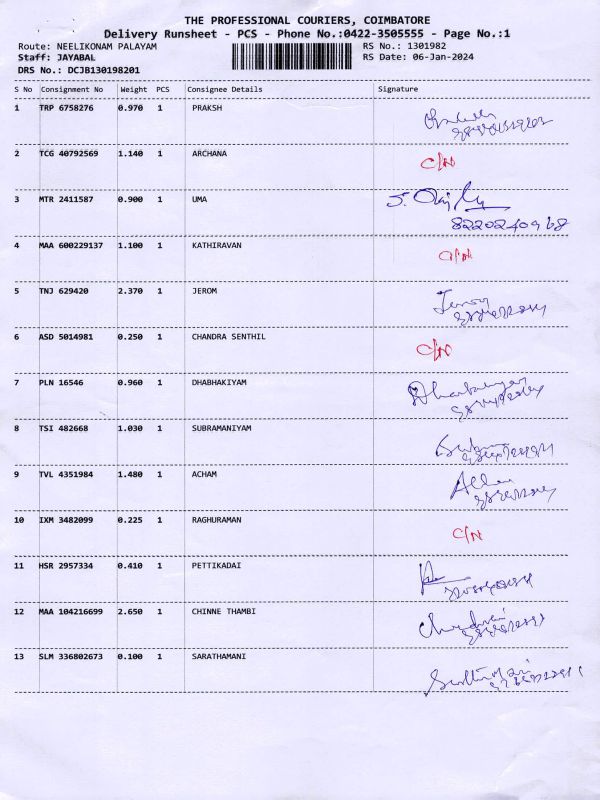 THE PROFESSIONAL COURIERS, COIMBATORE
Delivery Runsheet - PCS - Phone No.:0422-3505555 - Page No.:1
Route: NEELIKONAM PALAYAM RS No.: 1301982
Staff: JAYABAL RS Date: 06-Jan-2024
DRS No.: DCJB130198201
S No Consignment No Weight PCS Consignee Details Signature
1 TRP 6758276 0.970 1 PRAKSH
2 TCG 40792569 1.140 1 ARCHANA C/N
3 MTR 2411587 0.900 1 UMA
8220240968
4 MAA 600229137 1.100 1 KATHIRAVAN C/N
5 TNJ 629420 2.370 1 JEROM
6 ASD 5014981 0.250 1 CHANDRA SENTHIL C/N
7 PLN 16546 0.960 1 DHABHAKIYAM
8 TSI 482668 1.030 1 SUBRAMANIYAM
9 TVL 4351984 1.480 1 ACHAM
10 IXM 3482099 0.225 1 RAGHURAMAN C/N
11 HSR 2957334 0.410 1 PETTIKADAI
12 MAA 104216699 2.650 1 CHINNE THAMBI
13 SLM 336802673 0.100 1 SARATHAMANI